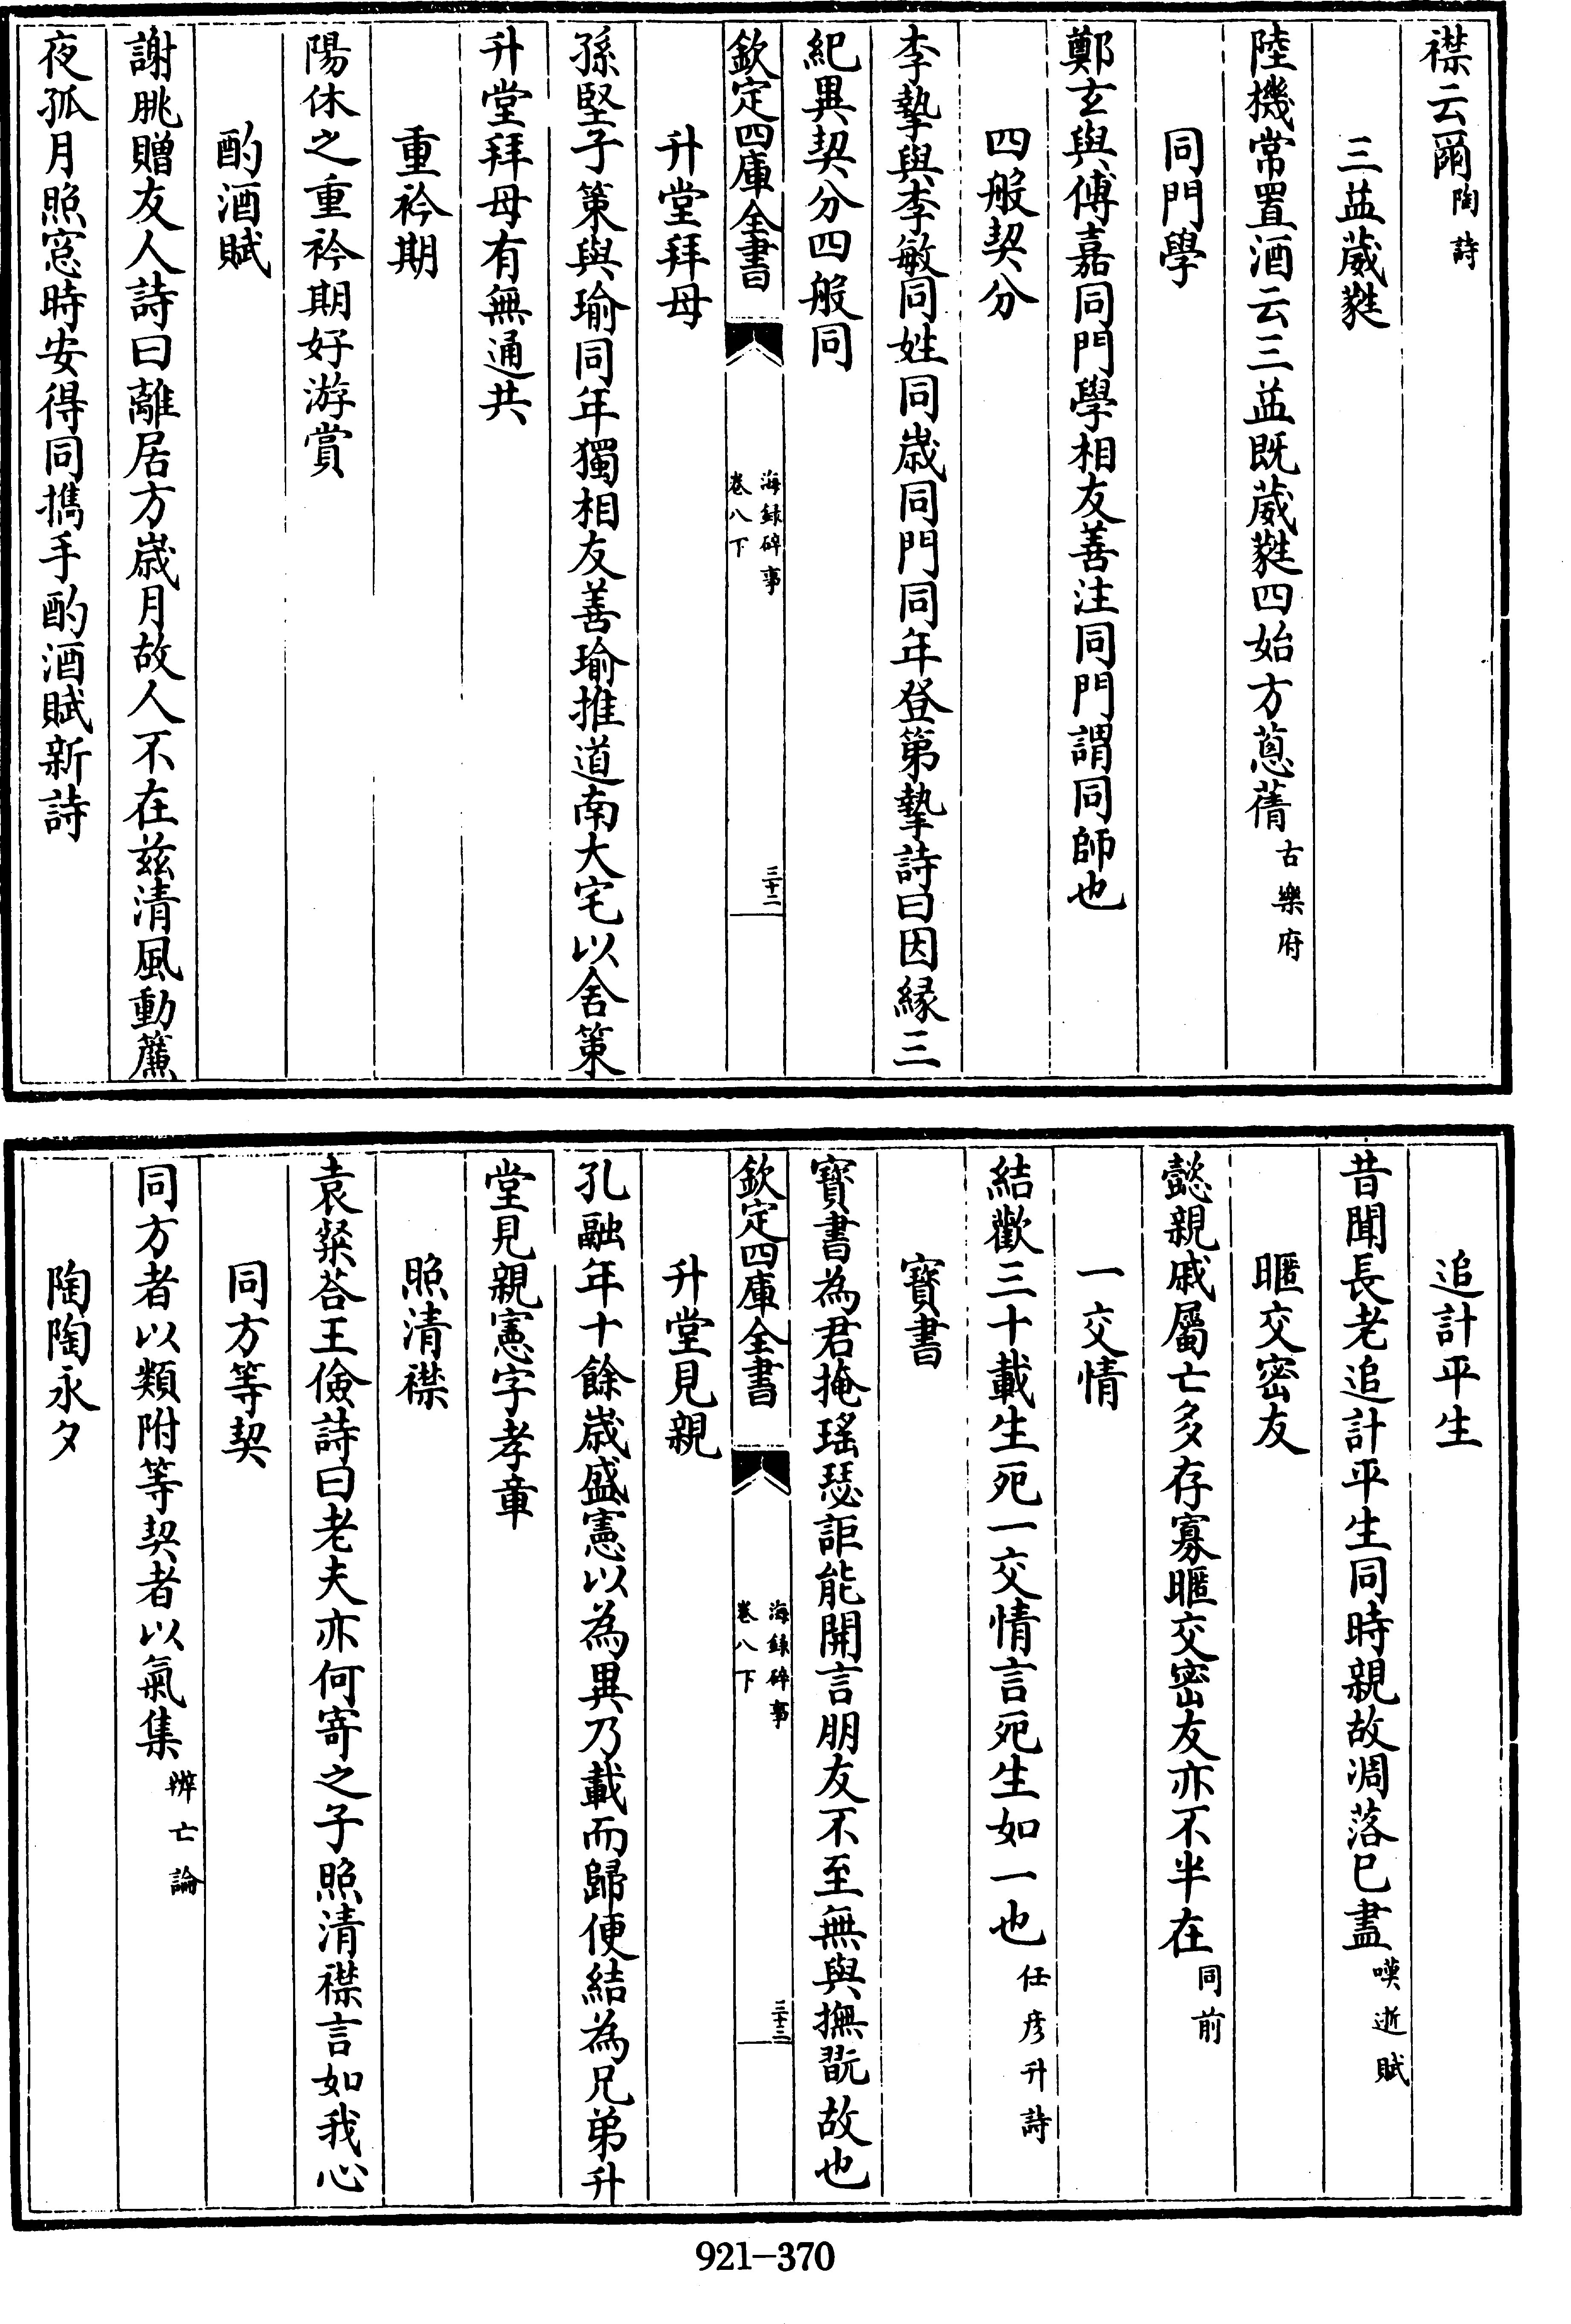 襟云爾陶詩
三益葳蕤
陸機常置酒云三益既葳蕤四始方蔥蒨古樂府
同門學
鄭玄與傅嘉同門學相友善注同門謂同師也
四般契分
李摯與李敏同姓同歲同門同年登第摯詩曰因緣三
紀異契分四般同
欽定四庫全書
海錄碎事
卷八下
三十二
升堂拜母
孫堅子策與瑜同年獨相友善瑜推道南大宅以舍策
升堂拜母有無通共
重衿期
陽休之重衿期好游賞
酌酒賦
謝朓贈友人詩曰離居方歲月故人不在茲清風動簾
夜孤月照窓時安得同擕手酌酒賦新詩
追計平生
昔聞長老追計平生同時親故凋落已盡嘆逝賦
暱交密友
懿親戚屬亡多存寡暱交密友亦不半在同前
一交情
結歡三十載生死一交情言死生如一也任彥升詩
寶書
寶書為君掩瑤瑟詎能開言朋友不至無與撫翫故也
欽定四庫全書
海錄碎事
卷八下
三十三
升堂見親
孔融年十餘歲盛憲以為異乃載而歸便結為兄弟升
堂見親憲字孝章
照清襟
袁粲荅王儉詩曰老夫亦何寄之子照清襟言如我心
同方等契
同方者以類附等契者以氣集辨亡論
陶陶永夕
921-370